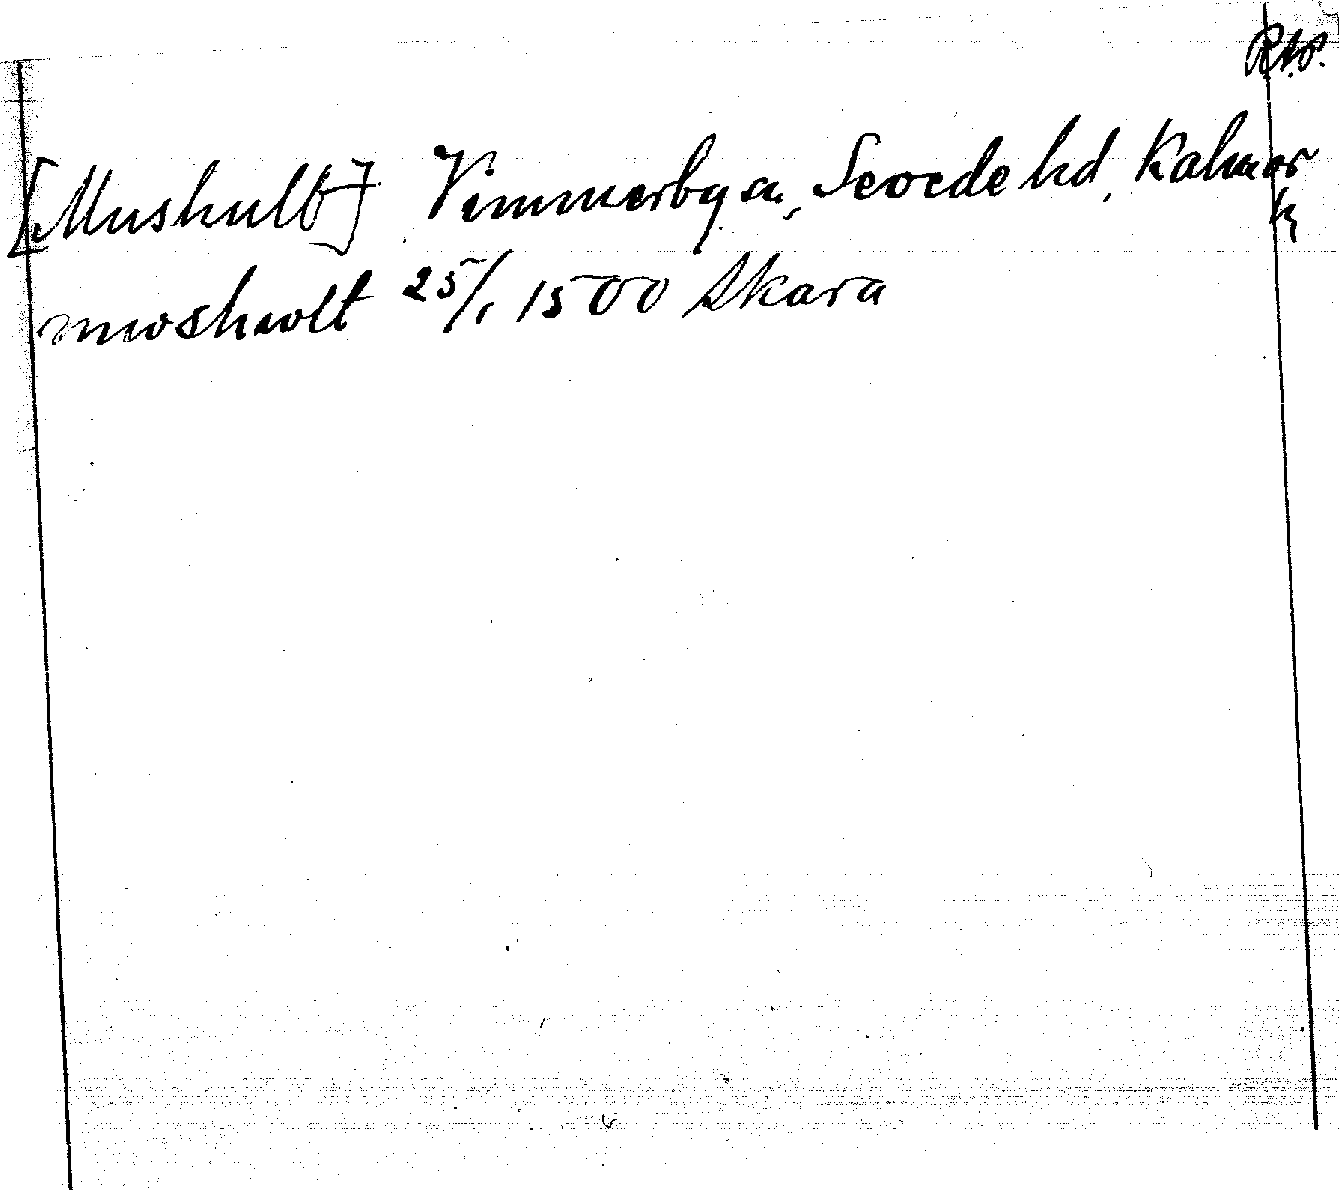 R.A.P.
[Mushult] Vimmerby sn, Sevede hd, Kalmar
l.
mwshwlt 25/1 1500 Skara